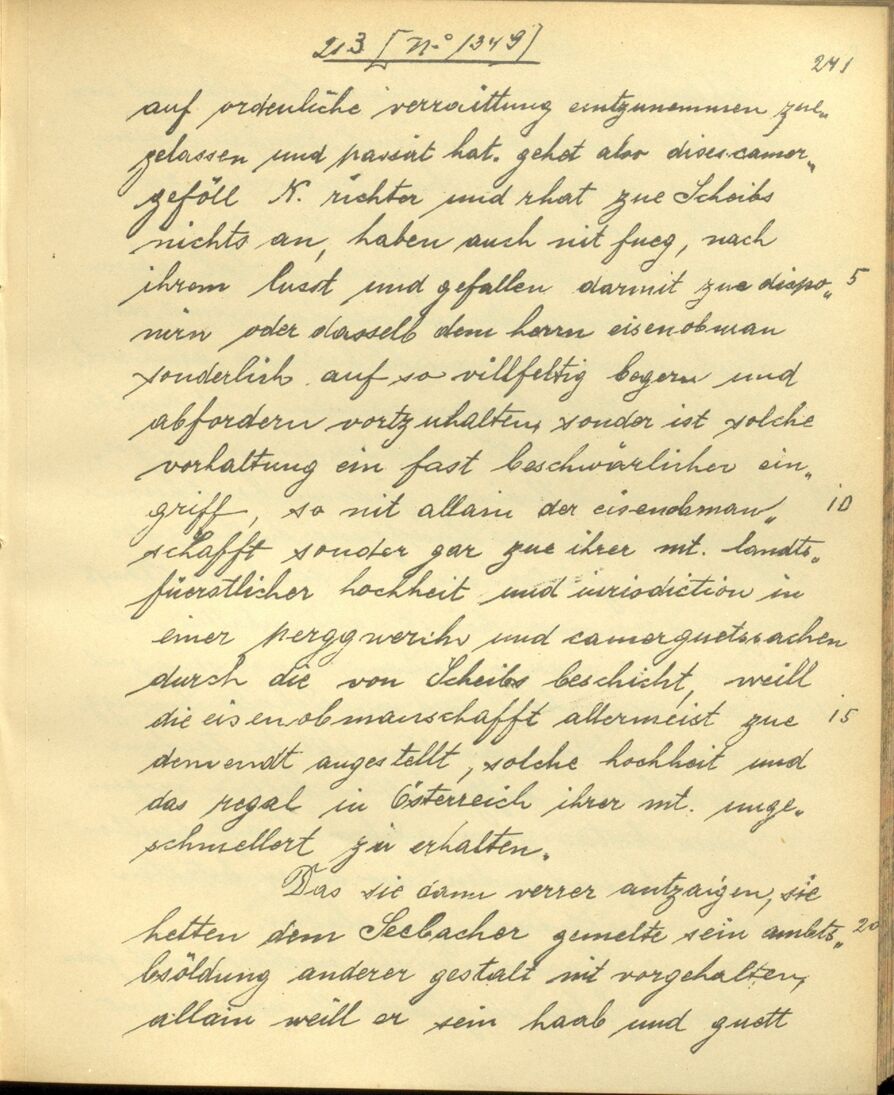 213 [N° 1349]
241
auf ordenliche verraittung eintzunemmen zue„
gelassen und passirt hat. gehet also dises camer„
geföll N. richter und rhat zue Scheibs
nichts an, haben auch nit fueg, nach
ihrem lusst und gefallen darmit zue dispo„ 5
nirn oder dasselb dem herrn eisenobman
sonderlich auf so villfeltig begern und
abfordern vortzuhalten, sonder ist solche
vorhaltung ein fast beschwärlicher ein„
griff, so nit allain der eisenobman„ 10
schafft sonder gar zue ihrer mt. landts„
füerstlicher hochheit und iurisdiction in
einer perggwerch und camerguetssachen
durch die von Scheibs beschicht, weill
die eisenobmanschafft allermeist zue 15
dem endt angestellt, solche hochheit und
das regal in Österreich ihrer mt. unge„
schmellert zu erhalten.
Das sie dann verrer antzaigen, sie
hetten dem Seebacher gemelte sein ambts„ 20
bsöldung anderer gestalt nit vorgehalten,
allain weill er sein haab und guett